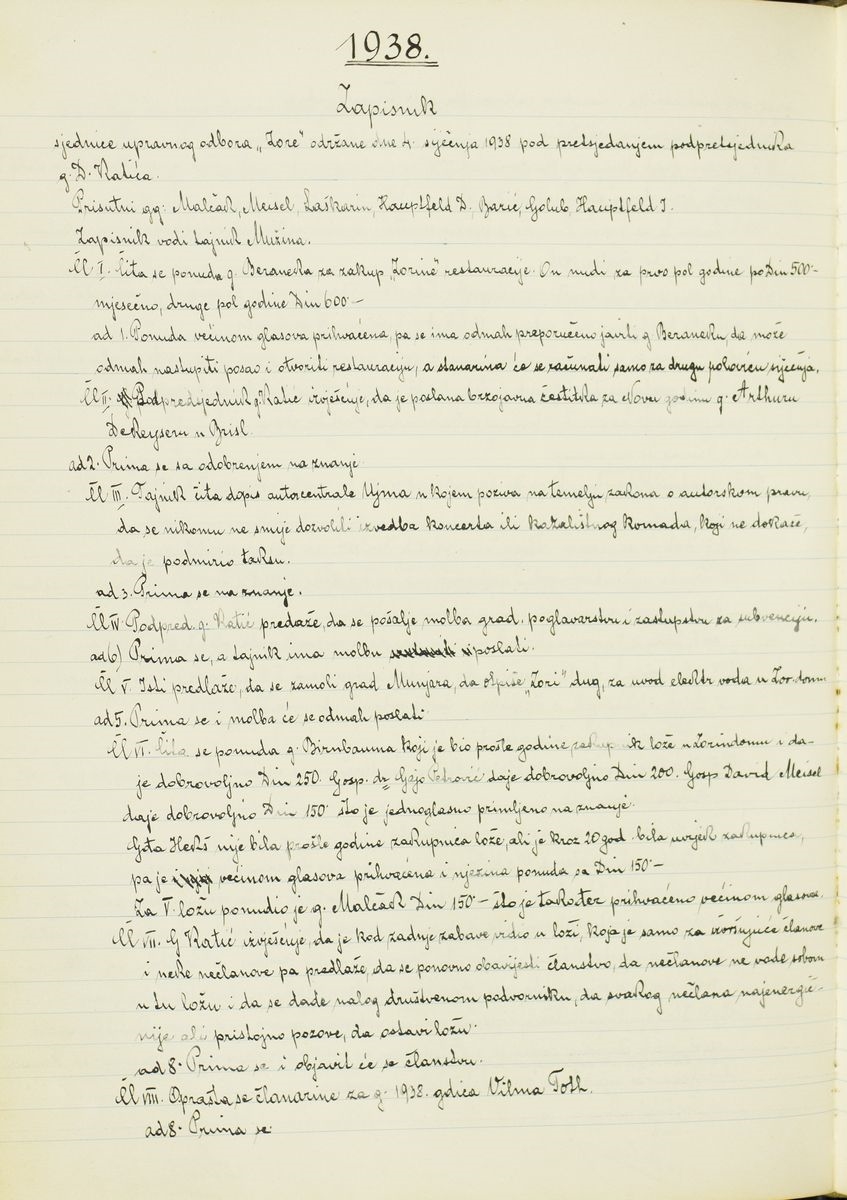 1938.
Zapisnik
sjednice upravnog odbora „Zore" održane dne 4. siječnja 1938 pod pretsjedanjem podpretsjednika
g. D. Katića.
Prisutni gg: Malčak, Meisel, Laškarin, Hauptfeld D., Barić, Golub, Hauptfeld J.
Zapisnik vodi tajnik Mužina.
Čl I. Čita se ponuda g. Beraneka za zakup „Zorine" restauracije. On nudi za prvo pol godine po Din 500·-
mjesečno, druge pol godine Din 600·-
ad 1. Ponuda većinom glasova prihvaćena, pa se ima odmah preporučeno javiti g. Beraneku, da može
odmah nastupiti posao i otvoriti restauraciju, a stanarina će se računati samo za drugu polovicu siječnja.
Čl II. Podpredsjednik g. Katić izvješćuje, da je poslana brzojavna čestitka za Novu godinu g. Arthuru
De Keyseru u Brisl.
ad 2. Prima se sa odobrenjem na znanje
Čl III. Tajnik čita dopis autorcentrale Ujma u kojem poziva na temelju zakona o autorskom pravu,
da se nikomu ne smije dozvoliti izvedba koncerta ili kazalištnog komada, koji ne dokaže,
da je podmirio taksu.
ad 3. Prima se na znanje.
Čl IV. Podpred. g. Katić predaže, da se pošalje molba grad. poglavarstvu i zastupstvu za subvenciju.
ad 6) Prima se, a tajnik ima molbu poslati.
Čl V. Isti predlaže, da se zamoli grad Munjara, da otpiše „Zori" dug, za uvod elektr voda u Zor. domu
ad 5. Prima se i molba će se odmah poslati
Čl VI. Čita se ponuda g. Birnbauma koji je bio prošle godine zakupnik lože u Zorindomu i da-
je dobrovoljno Din 250. Gosp. dr Gjajo Petrović daje dobrovoljno Din 200. Gosp David Meisel
daje dobrovoljno Din 150· što je jednoglasno primljeno na znanje.
Gđa Herš nije bila prošle godine zakupnica lože, ali je kroz 20 god. bila uvijek zakupnica,
pa je većinom glasova prihvaćena i njezina ponuda sa Din 150·-
Za V ložu ponudio je g. Malčak Din 150·- što je također prihvaćeno većinom glasova.
Čl VII. G Katić izvješćuje, da je kod zadnje zabave vidio u loži, koja je samo za izvršujuće članove
i neke nečlanove pa predlaže, da se ponovno obavijesti članstvo, da nečlanove ne vode sobom
u tu ložu i da se dade nalog društvenom podvorniku, da svakog nečlana najenergič-
nije ali pristojno pozove, da ostavi ložu.
ad 8. Prima se i objavit će se članstvu.
Čl VIII. Oprašta se članarine za g. 1938. gdjica Vilma Toth.
ad 8. Prima se.